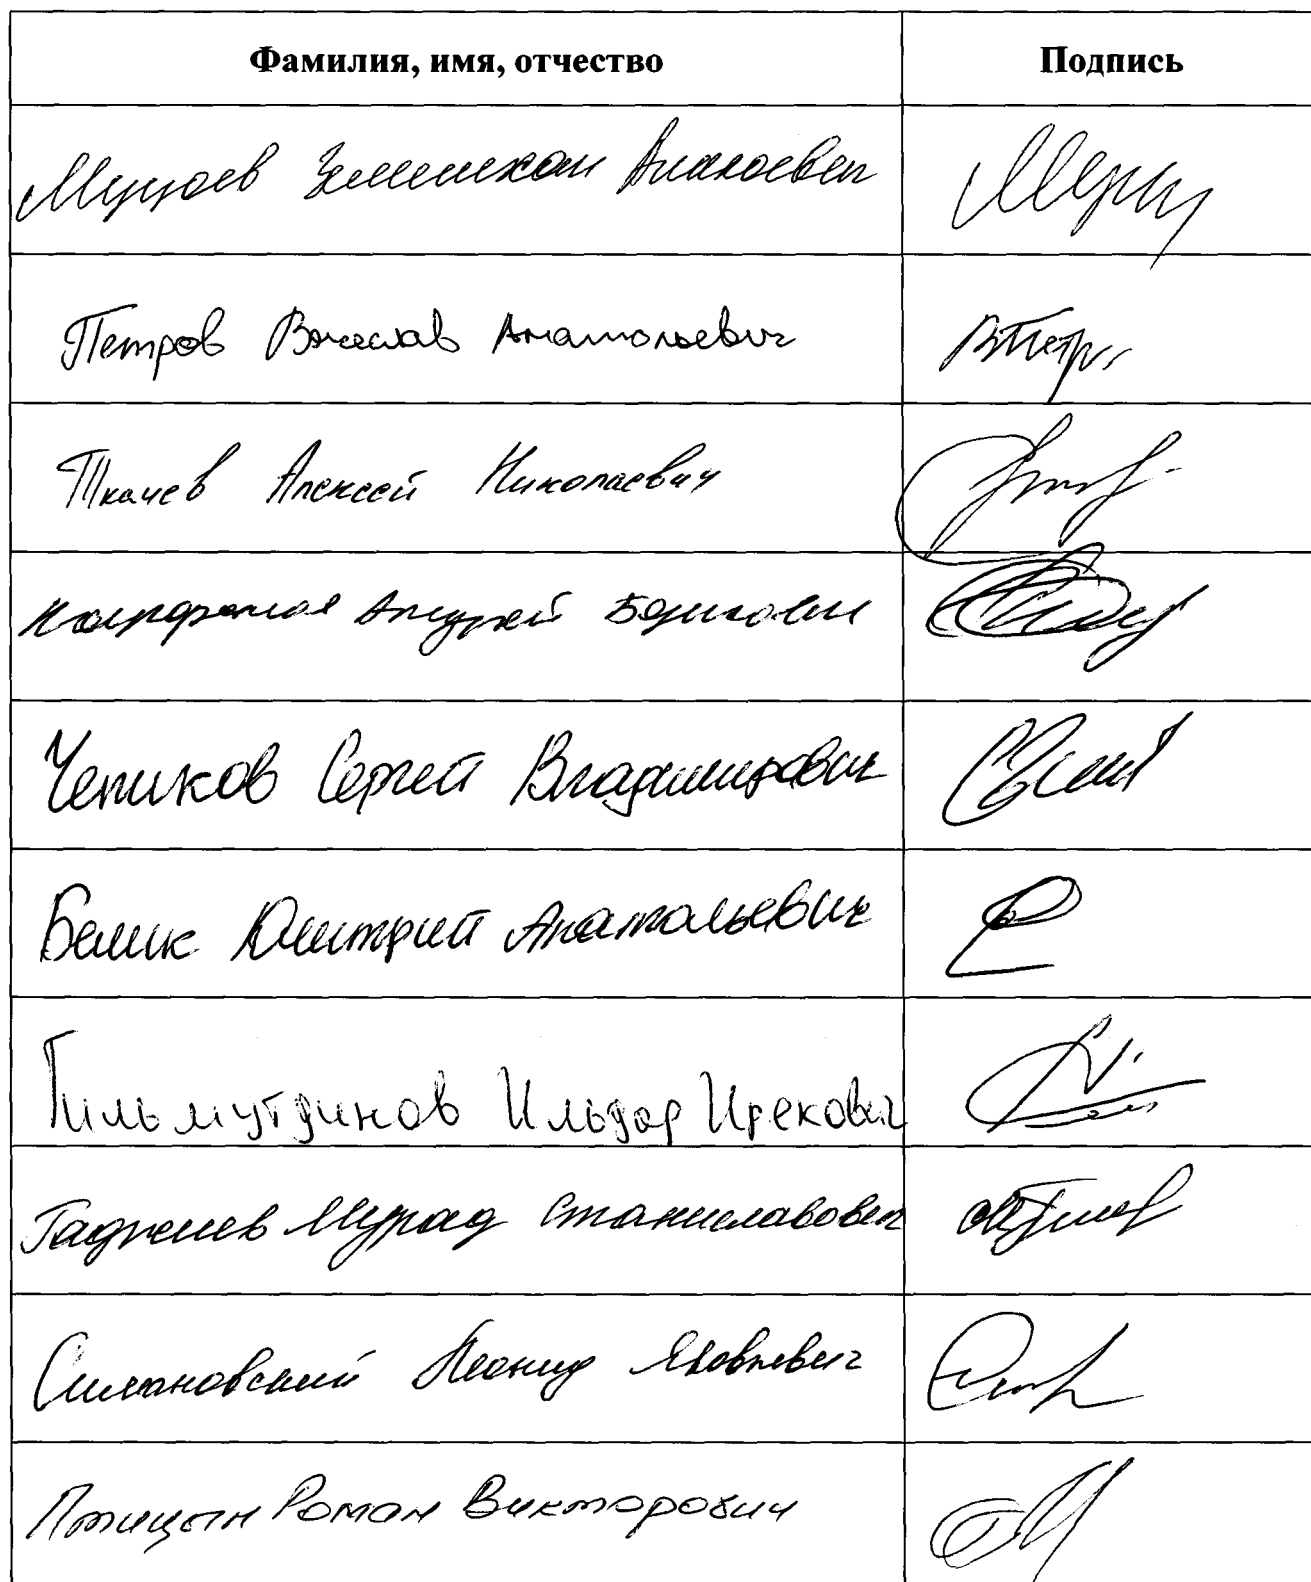 Фамилия, имя, отчество Подпись
Муцоев Зелимхан Аликоевич
Петров Вячеслав Анатольевич
Ткачев Алексей Николаевич
Андрей
Чепиков Сергей Владимирович
Белик Дмитрий Анатольевич
Гильмутдинов Ильдар Ирекович
Гаджиев Мурад Станиславович
Симановский Леонид Яковлевич
Птицын Роман Викторович